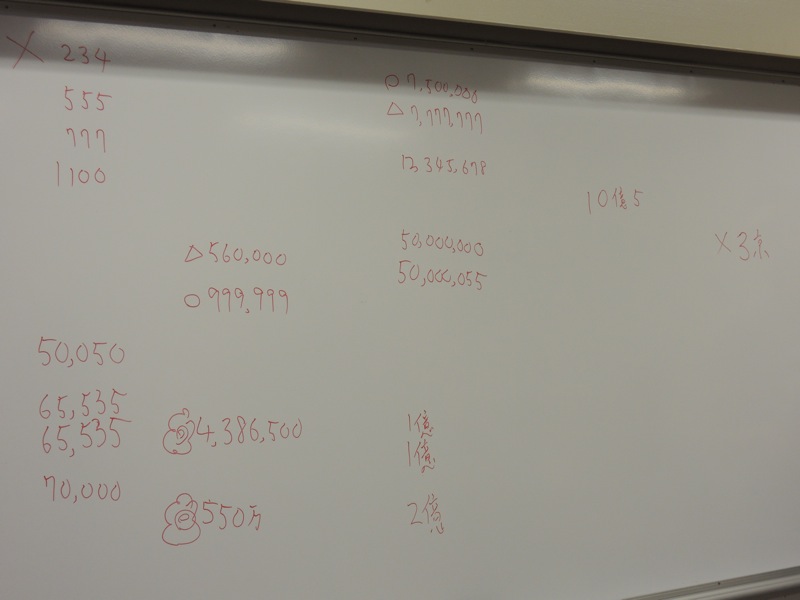 × 234
555
777
1100
50,050
65,535
65,535
70,000
△560,000
○999,999
4,386,500
550万
○7,500,000
△7,777,777
12,345,678
50,000,000
50,000,055
1億
1億
2億
10億5
×3京